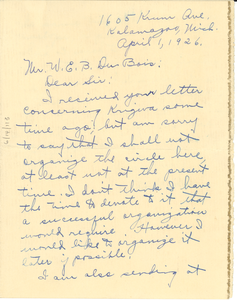 1605 Krom Ave.
Kalamazoo, Mich.
April 1, 1926.
Mr. W. E. B. Du Bois:
Dear Sir:
I received your letter
concerning Krigwa some
time ago but am sorry
to say that I shall not
organize the circle here,
at least not at the present
time. I don't think I have
the time to devote to it, that
a successful organization
would require. However I
would like to organize it
later if possible.
I am also sending at